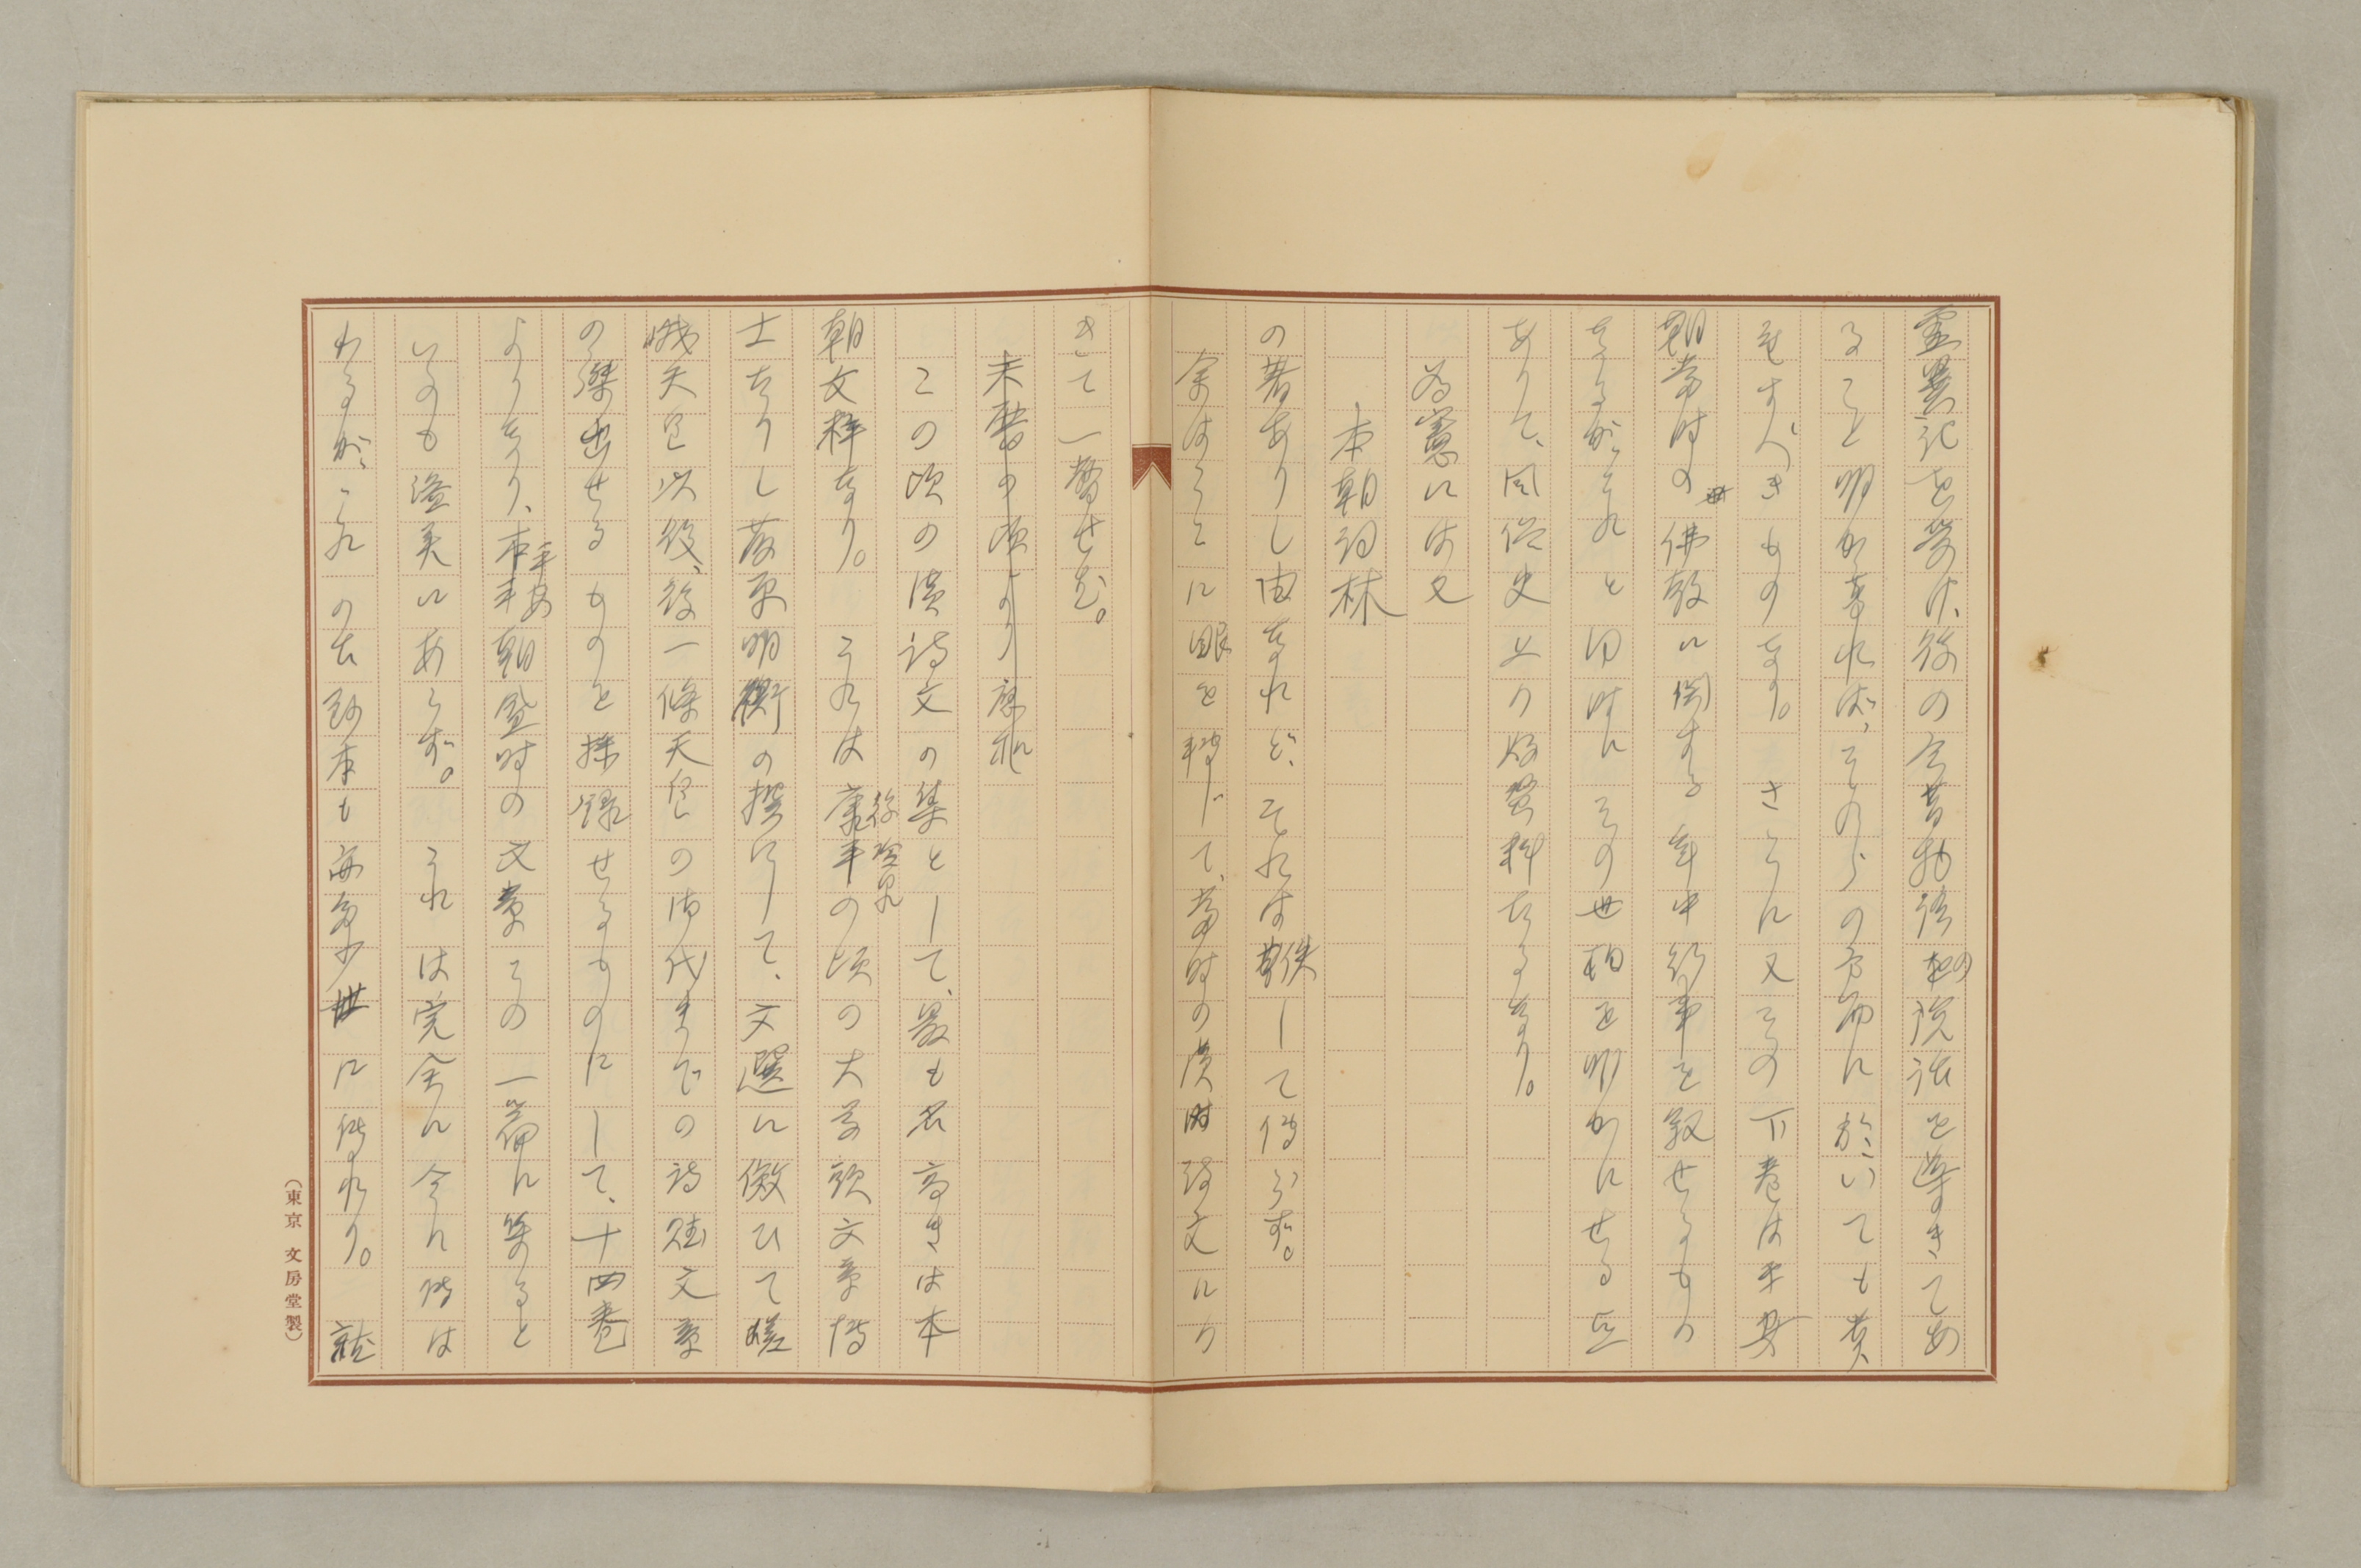 霊異記を発け、後の今昔物語の説話を導きてあ
ること明かなれば、その方面に於いても貴
重すべきものなり。さらに又その下巻は平安
朝当時の佛教に関する年中行事を叙せるもの
なるが、それと同時にその世相を明かにせる点
ありて、風俗史上の好資料たるなり。
為憲には又
本朝詞林
の著ありし由なれど、それは佚して伝はらず。
余はここに眼を転じて、当時の漢詩文にの
きて一瞥せむ。
天暦の頃より康和
この頃の漢詩文の集として、最も名高きは本
朝文粋なり。これは後冷泉の頃の大学頭文章博
士たりし藤原明衡の撰にして、文選に倣ひて嵯
峨天皇以後、後一條天皇の御代までの詩賦文章
の傑出せるものを採録せるものにして、十四巻
よりなり、平安朝盛時の文章この一篇に集ると
いふも溢美にあらず。これは完全に今に傳は
れるが、これの古鈔本も亦多少世に傳れり。就
(東京 文房堂製)